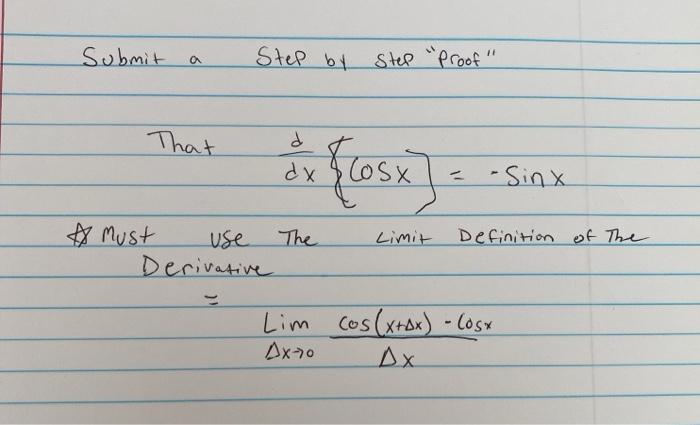 Submit a Step by Step "Proof"
That d/dx [cosx] = -sinx
☆ Must use The Limit Definition of The
Derivative
=
Lim Δx→0 (cos(x+Δx) - cosx)/Δx